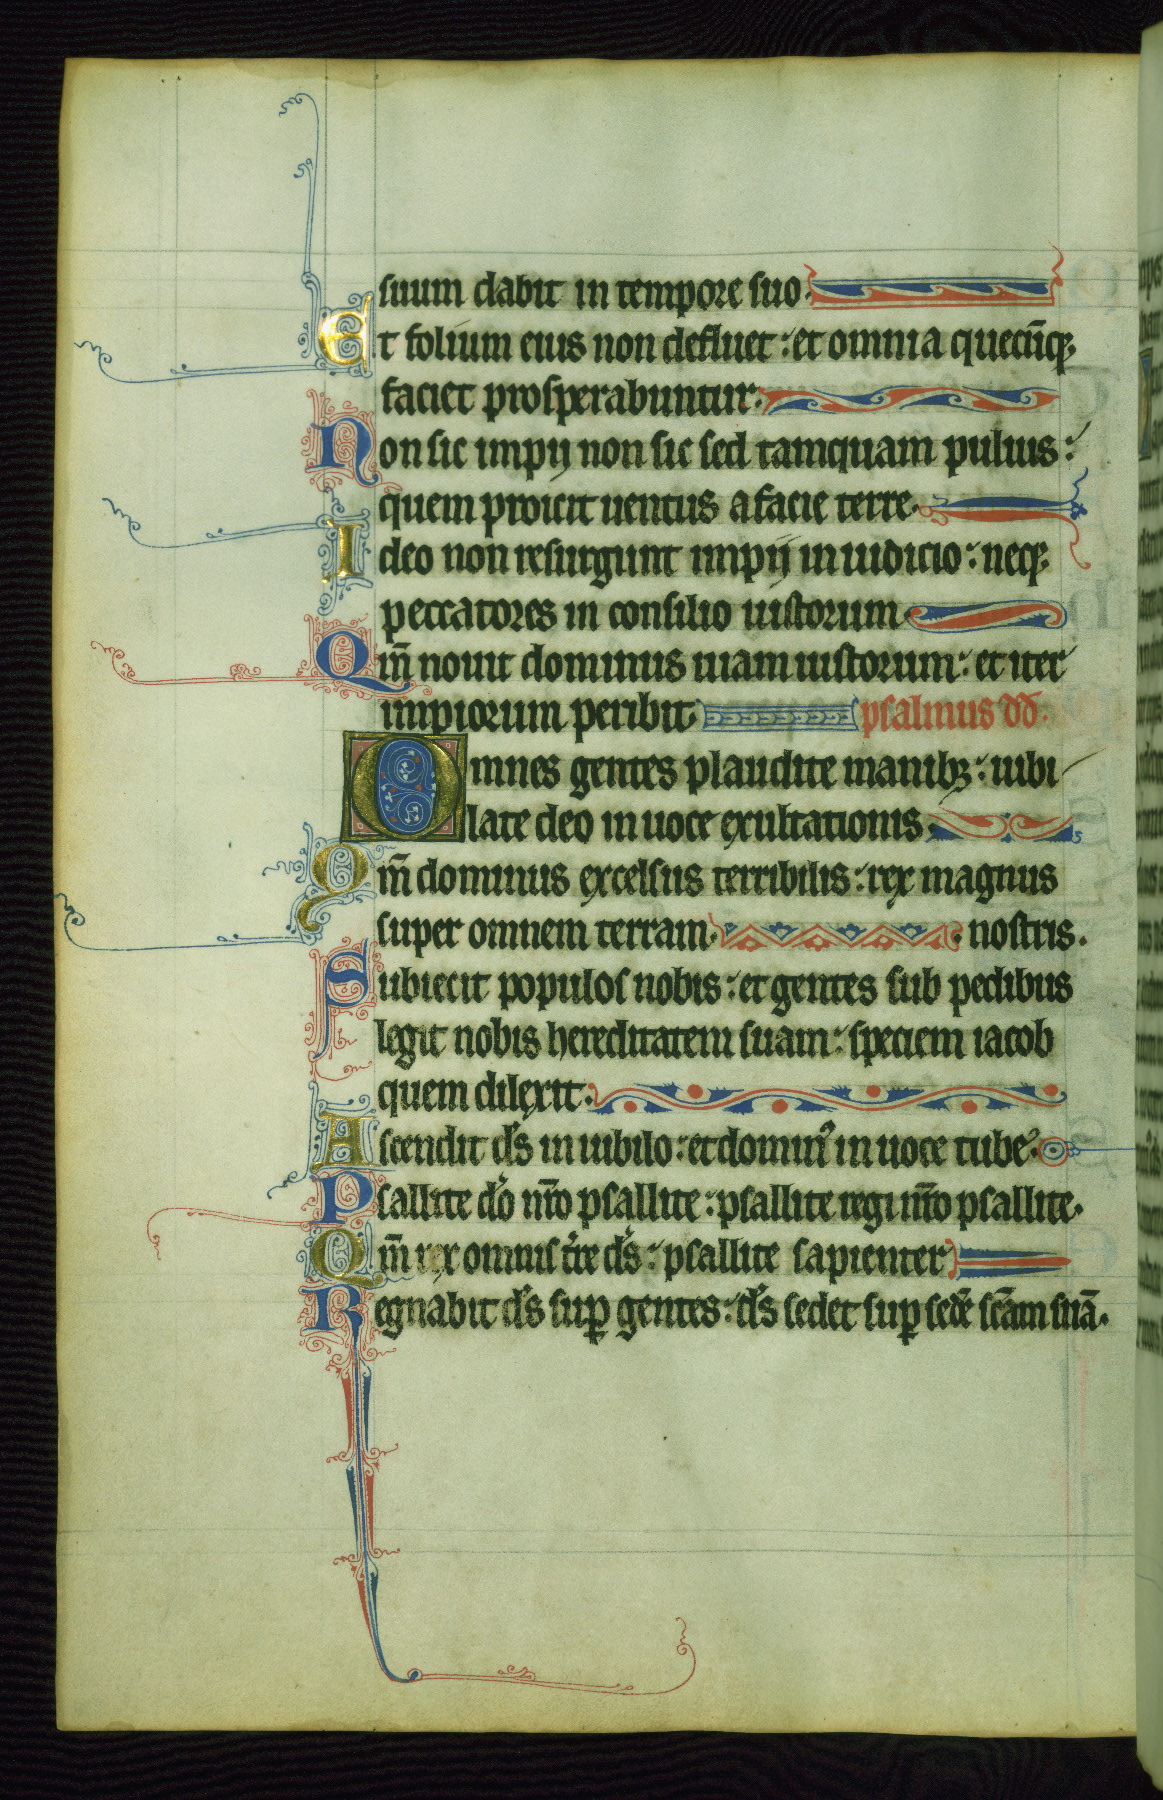 suum dabit in tempore suo.
Et folium eius non defluet: et omnia quecūqꝫ
faciet prosperabuntur.
Non sic impij non sic sed tamquam puluis:
quem proicit uentus a facie terre.
Ideo non resurgunt impij in iudicio: neqꝫ
peccatores in consilio iustorum
Qm̄ nouit dominus uiam iustorum: et iter
impiorum peribit. psalmus dd.
Omnes gentes plaudite manibꝫ: iubi
late deo in uoce exultationis.
Qm̄ dominus excelsus terribilis: rex magnus
super omnem terram. nostris.
Subiecit populos nobis: et gentes sub pedibus
legit nobis hereditatem suam: speciem iacob
quem dilexit.
Ascendit ds̄ in iubilo: et dominꝰ in uoce tube.
Psallite dō nr̄o psallite: psallite regi nr̄o psallite.
Qm̄ rex omnis tr̄e ds̄: psallite sapienter
Regnabit ds̄ suꝑ gentes: ds̄ sedet suꝑ sedē sc̄am suā.